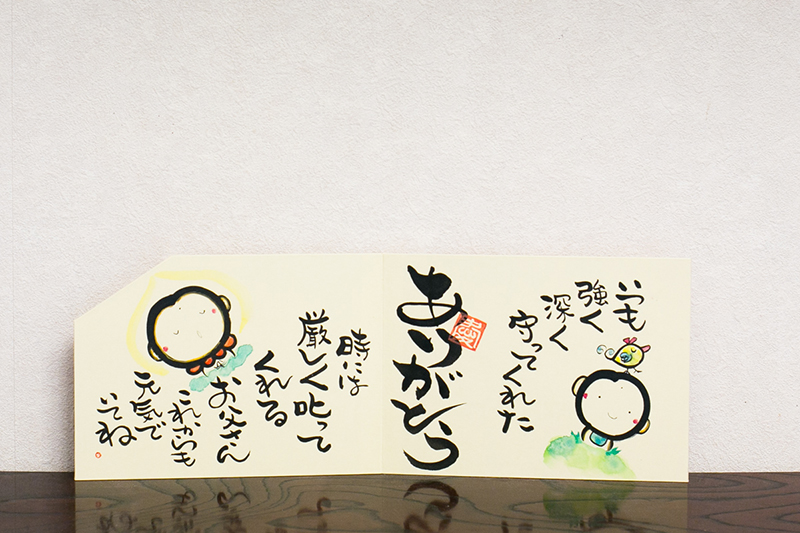 いつも
強く
深く
守ってくれた
ありがとう
時には
厳しく叱って
くれる
お父さん
これからも
元気で
いてね